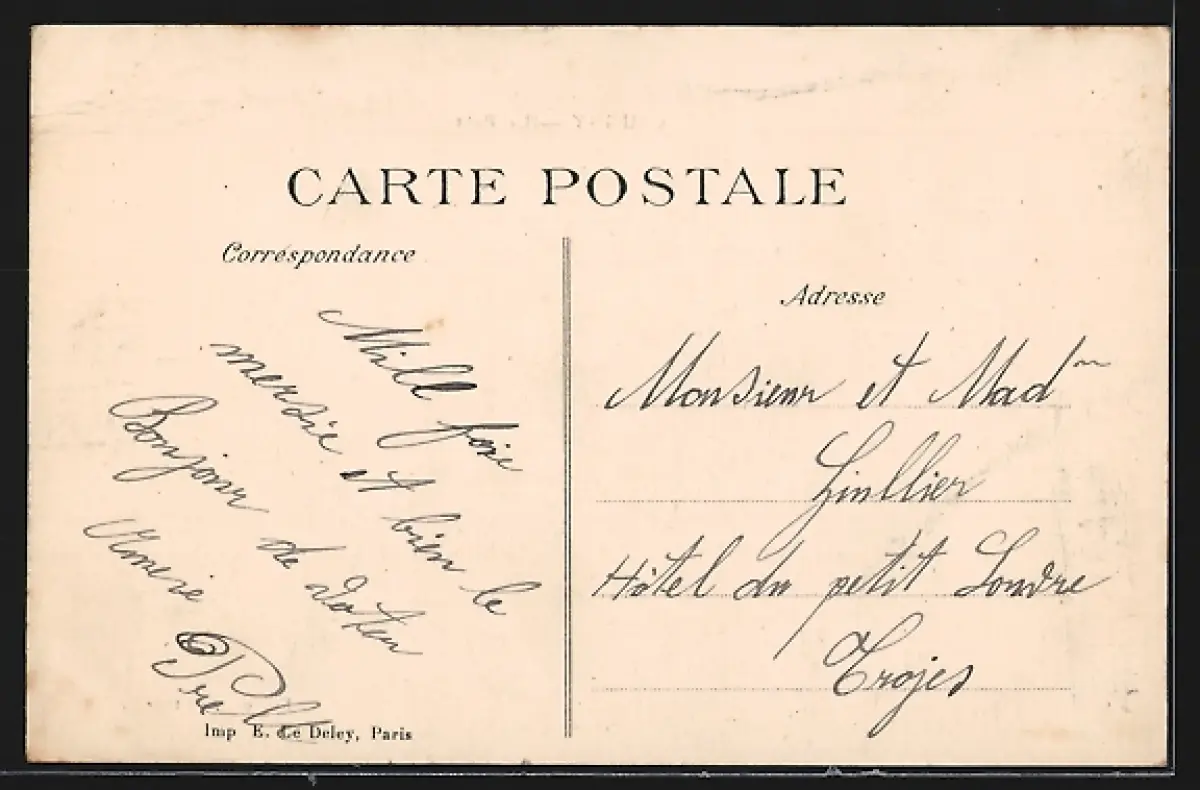 CARTE POSTALE
Correspondance
Mill fois
mersie et bien le
Bonjour de
Amerie
Imp E. Le Deley, Paris
Adresse
Monsieur et Mad
Hôtel du petit Londre
Trojes